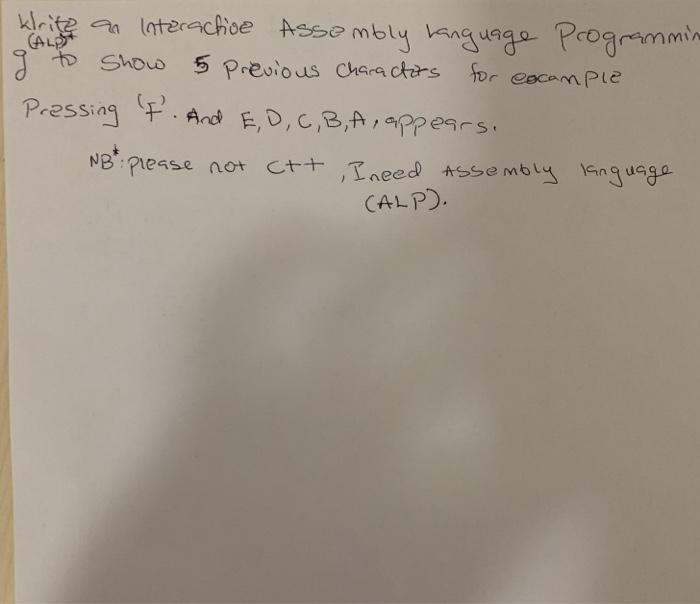 Write an Interactive Assembly language Programmin
(ALP)*
g to show 5 Previous Characters for example
Pressing 'F'. And E, D, C, B, A, appears.
NB*: please not C++, I need Assembly language
(ALP).